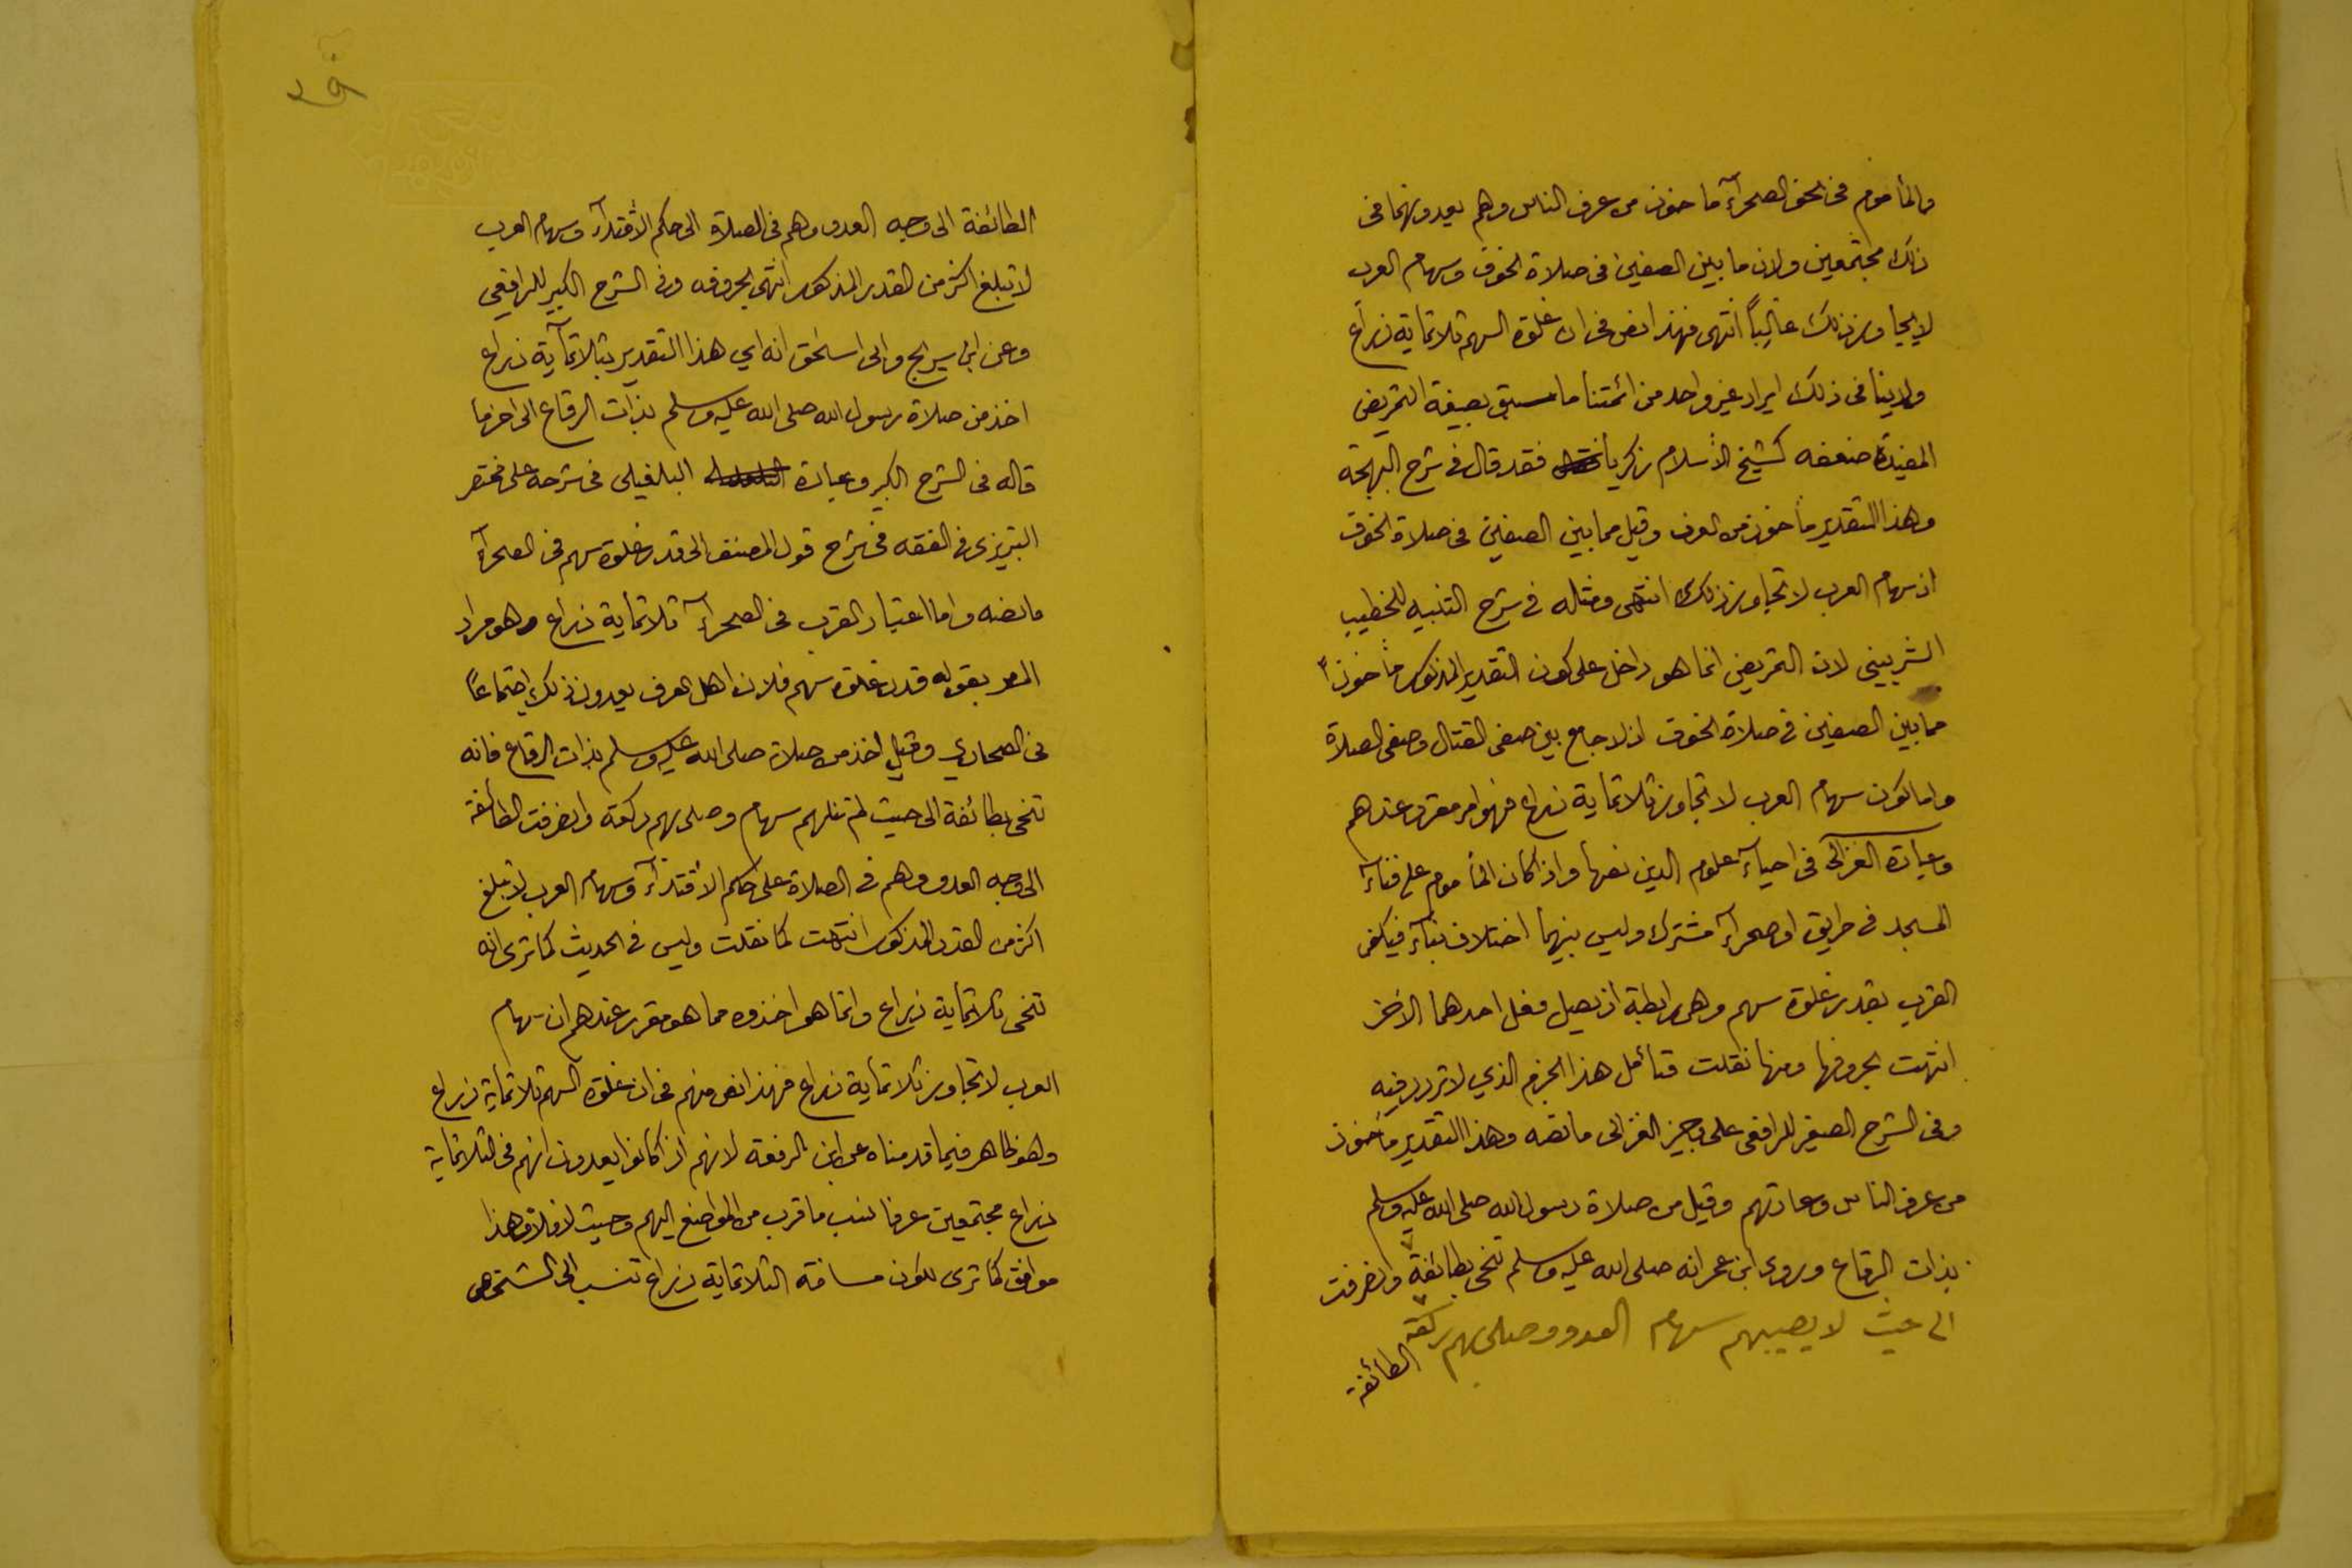 والمأموم في نحو الصحرآء مأخوذ من عرف الناس وهم يعدونهما في
ذلك مجتمعين ولان ما بين الصفين في صلاة الخوف وسهام العرب
لا يجاوز ذلك غالباً انتهى فهذا نص في ان غلوة السهم ثلاثماية ذراع
ولا ينافي ذلك ايراد غير واحد من ائمتنا ما سبق بصيغة التمريض
المفيدة ضعفه كشيخ الأسلام زكريا فقد قال في شرح البهجة
وهذا التقدير مأخوذ من العرف وقيل مما بين الصفين في صلاة الخوف
اذ سهام العرب لا تجاوز ذلك انتهى ومثله في شرح التنبيه للخطيب
الشربيني لان التمريض انما هو داخل على كون التقدير المذكور مأخوذاً
مما بين الصفين في صلاة الخوف اذ لا جامع بين صفي القتال وصفي الصلاة
واما كون سهام العرب لا تجاوز ثلاثماية ذراع فهو امر مقرر عندهم
وعبارة الغزالي في احيآء علوم الدين نصها واذا كان المأموم على فنآء
المسجد في طريق او صحرآء مشترك وليس بينهما اختلاف بنآء فيكفي
القرب بقدر غلوة سهم وهي رابطة اذ يصل فعل احدهما الاخر
انتهت بحروفها ومنها نقلت فتأمل هذا الجزم الذي لا تردد فيه
وفي الشرح الصغير للرافعي على وجيز الغزالي ما نصه وهذا التقدير مأخوذ
من عرف الناس وعادتهم وقيل من صلاة رسول الله صلى الله عليه وسلم
بذات الرقاع وروى ابن عمر انه صلى الله عليه وسلم تنحى بطائفة وانصرفت
الى حيث لا يصيبهم سهام العدو وصلى بهم ركعة
الطائفة
الطائفة الى وجه العدو وهم في الصلاة الى حكم الأقتدآء وسهام العرب
لا تبلغ اكثر من القدر المذكور انتهى بحروفه وفي الشرح الكبير للرافعي
وعن ابن سريج وابى اسحق انه اي هذا التقدير بثلاثمآية ذراع
اخذ من صلاة رسول الله صلى الله عليه وسلم بذات الرقاع الى اخر ما
قاله في الشرح الكبير وعبارة البلقيني في شرحه على مختصر
التبريزي في الفقه في شرح قول المصنف الى قدر غلوة سهم في الصحرآء
ما نصه واما اعتبار القرب في الصحرآء ثلاثماية ذراع وهو مراد
المص بقوله قدر غلوة سهم فلان اهل العرف يعدون ذلك اجتماعاً
في الصحاري وقيل اخذ من صلاة صلى الله عليه وسلم بذات الرقاع فانه
تنحى بطائفة الى حيث لم تنلهم سهام وصلى بهم ركعة وانصرفت الطائفة
الى وجه العدو وهم في الصلاة على حكم الأقتدآء وسهام العرب لا تبلغ
اكثر من القدر المذكور انتهت كما نقلت وليس في الحديث كما ترى انه
تنحى ثلاثماية ذراع وانما هو اخذوه مما هو مقرر عندهم ان سهام
العرب لا تجاوز ثلاثماية ذراع فهذا نص منهم في ان غلوة السهم ثلاثماية ذراع
وهو ظاهر فيما قدمناه عن ابن الرفعة لانهم اذا كانوا يعدون انهم في الثلاثماية
ذراع مجتمعين عرفا نسب ما قرب من المواضع اليهم وحيث لا فلا وهذا
موافق كما ترى لكون مسافة الثلاثماية ذراع تنسب الى الشخص